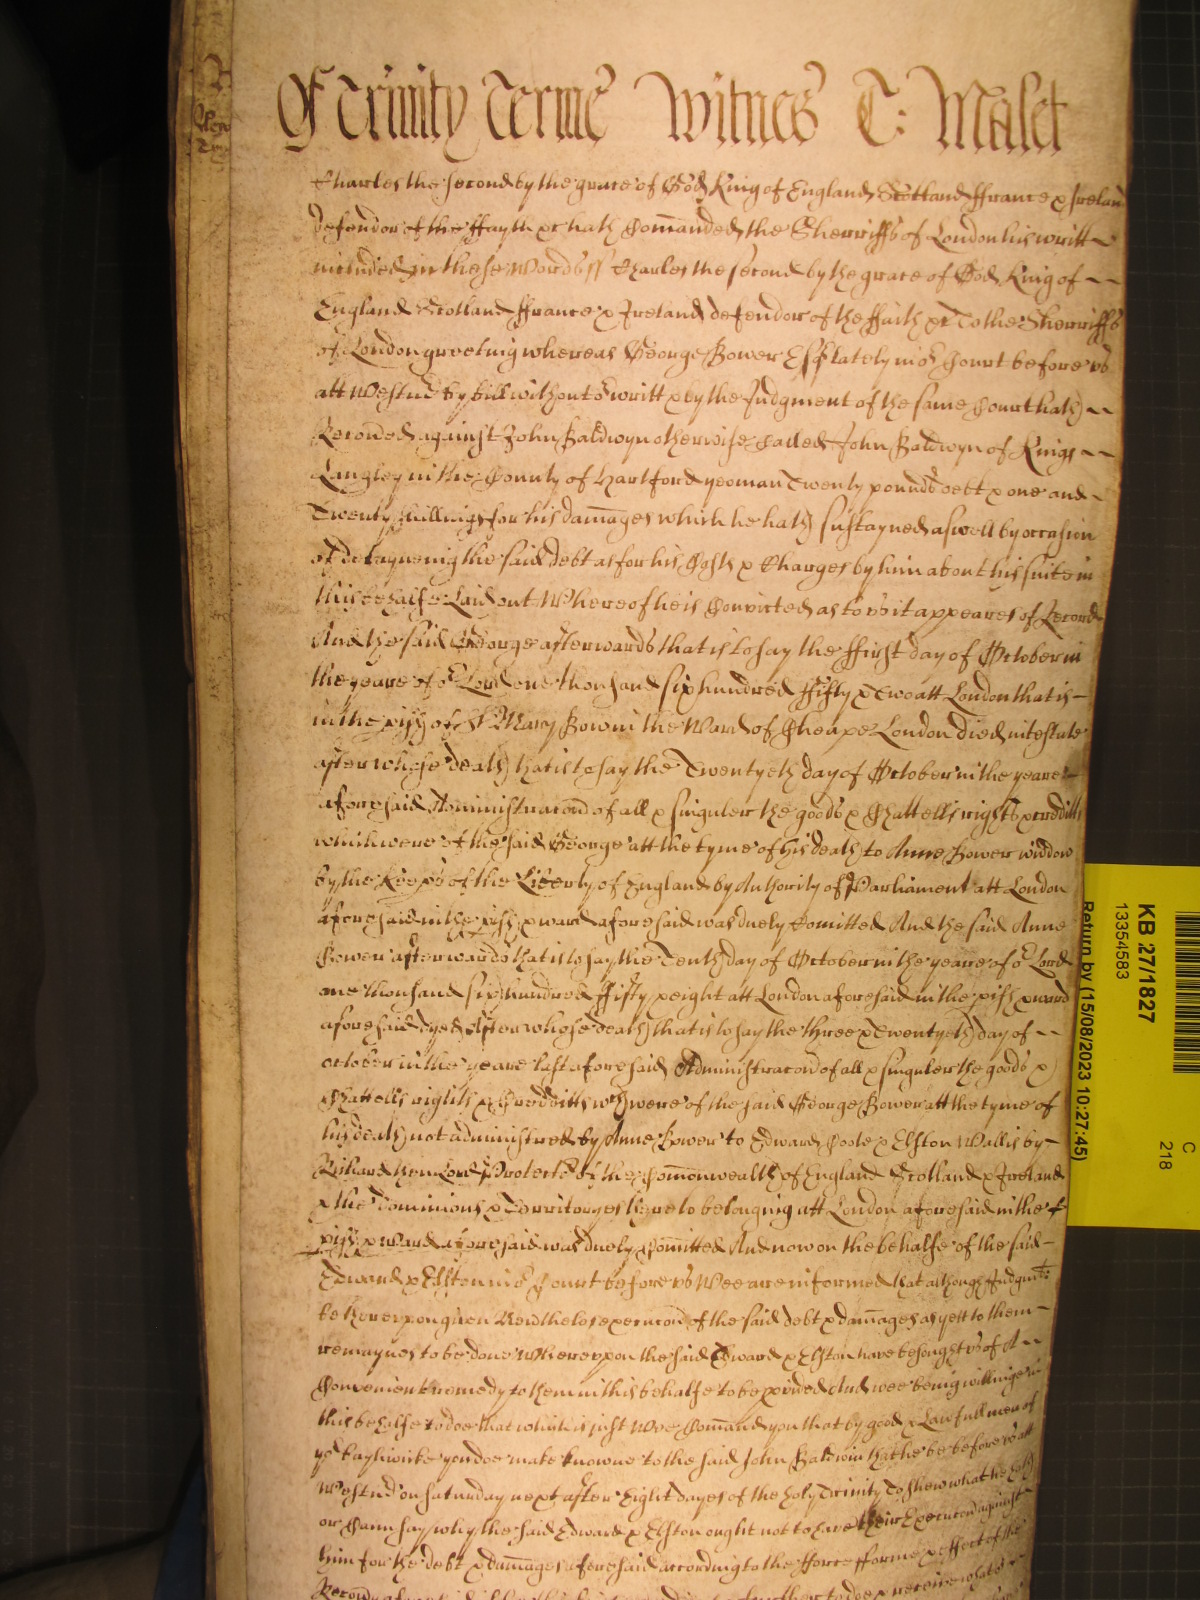 Of Trinity Terme Witnes T: Malet
Charles the second by the grace of God King of England Scotland ffrance & Ireland
defendor of the ffayth &c hath Comanded the Sherriffs of London his writt
included in these words ss Charles the second by the grace of God King of
England Scotland ffrance & Ireland defendor of the ffaith &c To the Sherriffs
of London greeting whereas George Bower Esq lately in or Court before us
att Westmr by bill without or writt & by the Judgment of the same Court hath
Recoved against John Baldwyn otherwise called John Baldwyn of Kings
Langley in the County of Hartford yeoman Twenty pounds debt & one and
Twenty shillings for his damages which he hath sustayned aswell by occasion
of detayneing the said debt as for his Costs & Charges by him about his suite in
this behalfe Laid out Whereof he is Convicted as to us it appeares of Record
And the said George afterwards that is to say the ffirst day of October in
the yeare of or Lord one thousand six hundred ffifty & Two att London that is
in the pish of St Mary Bow in the Ward of Cheape London died intestate
after whose death that is to say the Twentyeth day of October in the yeare
aforesaid Administracon of all & singuler the goods & Chattells rights & credditts
which were of the said George att the tyme of his death to Anne Bower widdow
by the Keeps of the Liberty of England by Authority of Parliament att London
aforesaid in the pish & ward aforesaid was duely Comitted And the said Anne
Bower afterwards that is to say the Tenth day of October in the yeare of or Lord
one thousand six hundred ffifty & eight att London aforesaid in the pish & ward
aforesaid dyed After whose death that is to say the three & Twentyeth day of
October in the yeare last aforesaid Administracon of all & singuler the goods &
Chattells rights & Credditts wch were of the said George Bower att the tyme of
his death not administred by Anne Bower to Edward Coole & Elston Wallis by
Richard then Lord Protector of the Comonwealth of England Scotland & Ireland
& the dominions & Territoryes thereto belonging att London aforesaid in the
pish & Ward aforesaid was duely Comitted And now on the behalfe of the said
Edward & Elston in or Court before us Wee are informed that although Judgmt
be thereupon given Nevthelesse execucon of the said debt & damages as yett to them
remaynes to be done Whereupon the said Edward & Elston have besought us of A
Convenient remedy to them in this behalfe to be pvided And wee being willinge in
this behalfe to doe that which is just Wee Comand you that by good & Lawfull men of
yor Bayliwicke you doe make knowne to the said John Baldwin that he be before us att
Westmr on Saturday next after Eight dayes of the holy Trinity To shew what he hath
or Cann say why the said Edward & Elston ought not to have their Execucon against
him for the debt & damages aforesaid according to the fforce fforme & effect of the
KB 27/1827
13354583
C
218
Return by (15/08/2023 10:27:45)